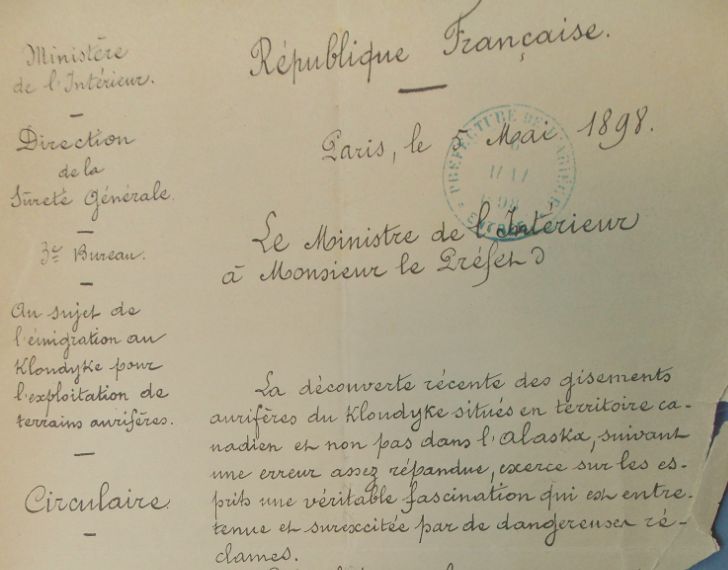 Ministère
de l'Intérieur.
Direction
de la
Sûreté Générale.
3e Bureau.
Au sujet de
l'émigration au
Klondyke pour
l'exploitation de
terrains aurifères.
Circulaire
République Française.
Paris, le 5 Mai 1898.
PRÉFECTURE DE L'ARIÈGE
6
MAI
98
ENTRÉE
Le Ministre de l'Intérieur
à Monsieur le Préfet
La découverte récente des gisements
aurifères du Klondyke situés en territoire ca-
nadien et non pas dans l'Alaska, suivant
une erreur assez répandue, exerce sur les es-
prits une véritable fascination qui est entre-
tenue et surexcitée par de dangereuses ré-
clames.